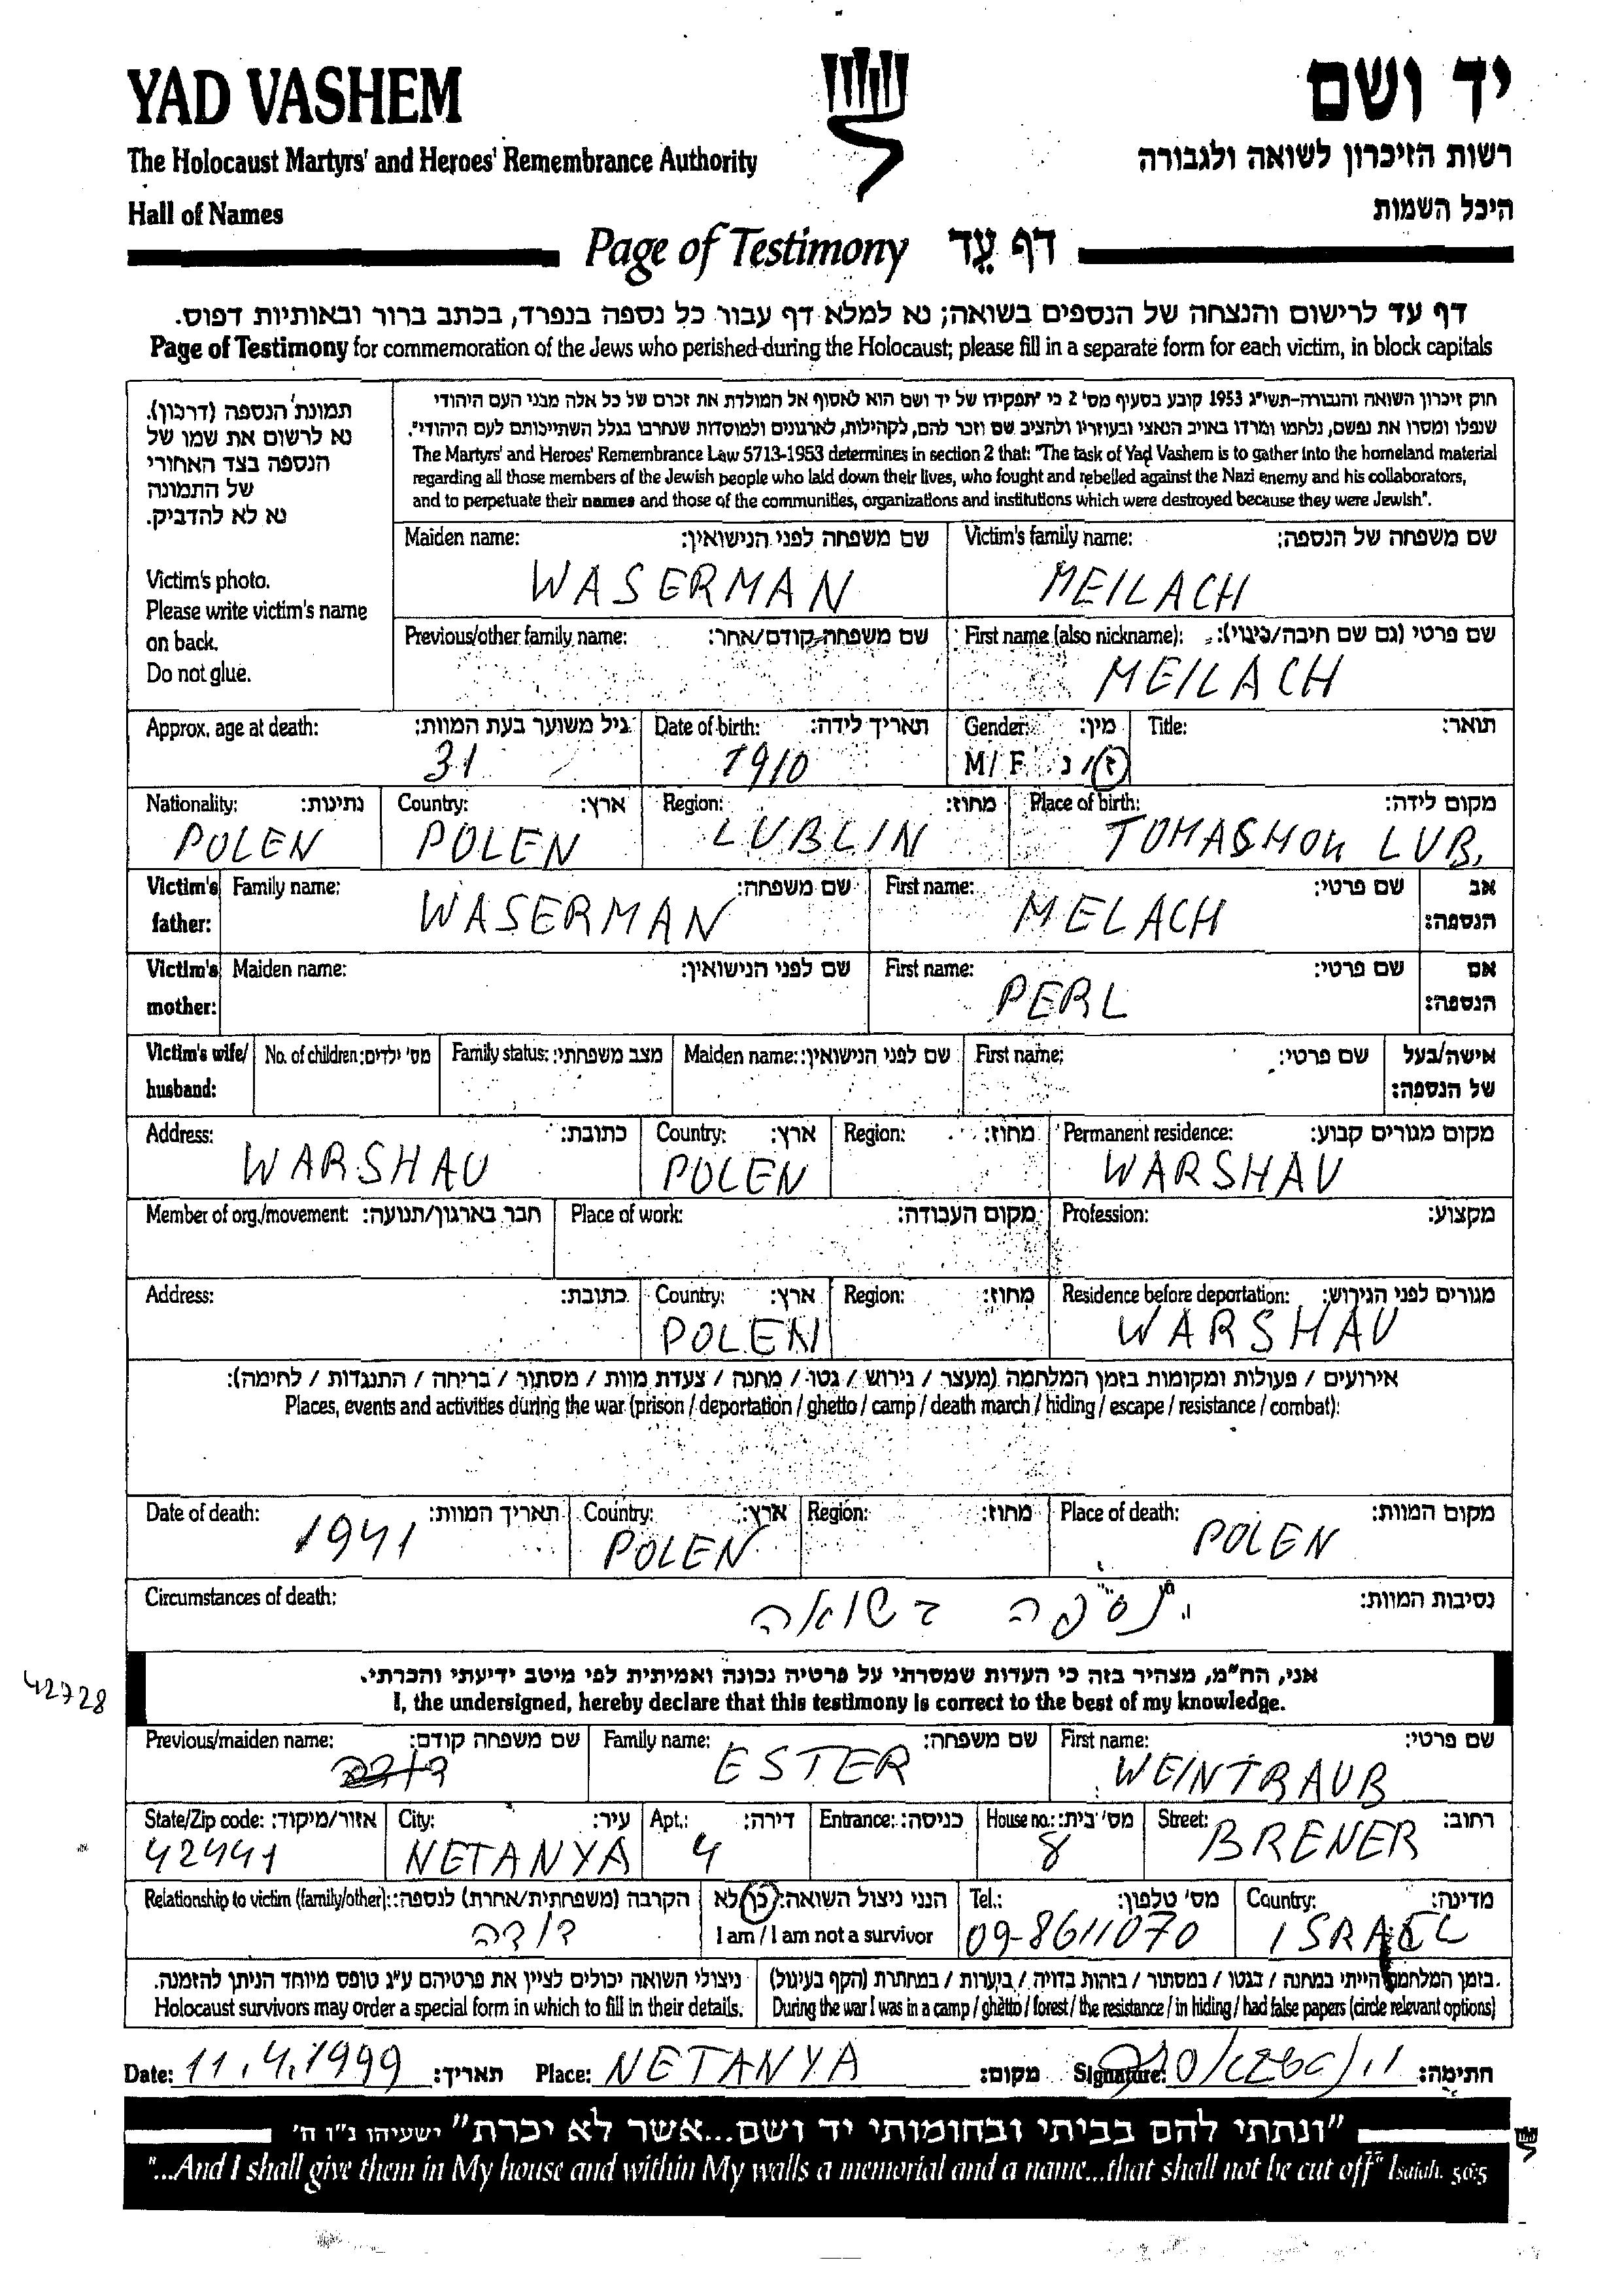 YAD VASHEM
יד ושם
The Holocaust Martyrs' and Heroes' Remembrance Authority
רשות הזיכרון לשואה ולגבורה
Hall of Names
היכל השמות
Page of Testimony דף עֵד
דף עד לרישום והנצחה של הנספים בשואה; נא למלא דף עבור כל נספה בנפרד, בכתב ברור ובאותיות דפוס.
Page of Testimony for commemoration of the Jews who perished during the Holocaust; please fill in a separate form for each victim, in block capitals
תמונת הנספה (דרכון).
נא לרשום את שמו של
הנספה בצד האחורי
של התמונה
נא לא להדביק.
Victim's photo.
Please write victim's name
on back.
Do not glue.
חוק זיכרון השואה והגבורה-תשי"ג 1953 קובע בסעיף מס' 2 כי "תפקידו של יד ושם הוא לאסוף אל המולדת את זכרם של כל אלה מבני העם היהודי
שנפלו ומסרו את נפשם, נלחמו ומרדו באויב הנאצי ובעוזריו ולהציב שם וזכר להם, לקהילות, לארגונים ולמוסדות שנחרבו בגלל השתייכותם לעם היהודי".
The Martyrs' and Heroes' Remembrance Law 5713-1953 determines in section 2 that: "The task of Yad Vashem is to gather into the homeland material
regarding all those members of the Jewish people who laid down their lives, who fought and rebelled against the Nazi enemy and his collaborators,
and to perpetuate their names and those of the communities, organizations and institutions which were destroyed because they were Jewish".
Maiden name: שם משפחה לפני הנישואין: Victim's family name: שם משפחה של הנספה:
WASERMAN MEILACH
Previous/other family name: שם משפחה קודם/אחר: First name (also nickname): שם פרטי (גם שם חיבה/כינוי):
MEILACH
Approx. age at death: גיל משוער בעת המוות: Date of birth: תאריך לידה: Gender: מין: Title: תואר:
31 1910 M/ F ז/ נ
Nationality: נתינות: Country: ארץ: Region: מחוז: Place of birth: מקום לידה:
POLEN POLEN LUBLIN TOMASHOW LUB.
Victim's father: Family name: שם משפחה: First name: שם פרטי: אב הנספה:
WASERMAN MELACH
Victim's mother: Maiden name: שם לפני הנישואין: First name: שם פרטי: אם הנספה:
PERL
Victim's wife/ husband: No. of children: מס' ילדים: Family status: מצב משפחתי: Maiden name: שם לפני הנישואין: First name: שם פרטי: אישה/בעל של הנספה:
Address: כתובת: Country: ארץ: Region: מחוז: Permanent residence: מקום מגורים קבוע:
WARSHAU POLEN WARSHAU
Member of org./movement: חבר בארגון/תנועה: Place of work: מקום העבודה: Profession: מקצוע:
Address: כתובת: Country: ארץ: Region: מחוז: Residence before deportation: מגורים לפני הגירוש:
POLEN WARSHAU
אירועים / פעולות ומקומות בזמן המלחמה (מעצר / גירוש / גטו / מחנה / צעדת מוות / מסתור / בריחה / התנגדות / לחימה):
Places, events and activities during the war (prison / deportation / ghetto / camp / death march / hiding / escape / resistance / combat):
Date of death: תאריך המוות: Country: ארץ: Region: מחוז: Place of death: מקום המוות:
1941 POLEN POLEN
Circumstances of death: נסיבות המוות:
נספה בשואה
42728
אני, הח"מ, מצהיר בזה כי העדות שמסרתי על פרטיה נכונה ואמיתית לפי מיטב ידיעתי והכרתי.
I, the undersigned, hereby declare that this testimony is correct to the best of my knowledge.
Previous/maiden name: שם משפחה קודם: Family name: שם משפחה: First name: שם פרטי:
ESTER WEINTRAUB
State/Zip code: אזור/מיקוד: City: עיר: Apt.: דירה: Entrance: כניסה: House no.: מס' בית: Street: רחוב:
42441 NETANYA 4 8 BRENER
Relationship to victim (family/other): הקרבה (משפחתית/אחרת) לנספה: הנני ניצול השואה: כן/לא Tel.: מס' טלפון: Country: מדינה:
דודה I am / I am not a survivor 09-8611070 ISRAEL
ניצולי השואה יכולים לציין את פרטיהם ע"ג טופס מיוחד הניתן להזמנה. בזמן המלחמה הייתי במחנה / בגטו / במסתור / בזהות בדויה / ביערות / במחתרת (הקף בעיגול).
Holocaust survivors may order a special form in which to fill in their details. During the war I was in a camp / ghetto / forest / the resistance / in hiding / had false papers (circle relevant options)
Date: 11.4.1999 תאריך: Place: NETANYA מקום: Signature: חתימה:
"ונתתי להם בביתי ובחומותי יד ושם...אשר לא יכרת" ישעיהו נ"ו ה'
"...And I shall give them in My house and within My walls a memorial and a name...that shall not be cut off" Isaiah. 56:5